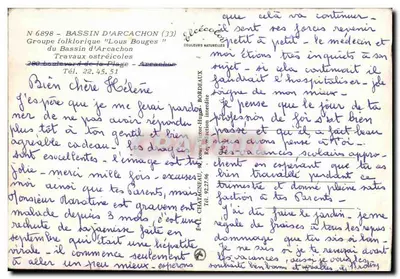 N 6898 - BASSIN D'ARCACHON (33)
Groupe folklorique "Lous Bouges"
du Bassin d'Arcachon
Travaux ostréicoles
Tél. 22.45.51
Bien chère Hélène
J'espère que je me ferai pardonner
de ne pas avoir répondu
plus tôt à ton gentil et bien
agréable cadeau. les dragées
sont excellentes - l'image est très
jolie - merci mille fois - excuses
moi ainsi que tes Parents, mais
Monsieur est gravement
malade depuis 3 mois, c'est une
rechute de sa jaunisse faite en
septembre qui était une hépatite
virale - il commence seulement
à aller un peu mieux - espérons
COULEURS NATURELLES
que celà va continuer
sont ses forces revenir
petit à petit - le médecin et
moi étions très inquiets à son
sujet - si celà continuait il
faudrait l'hospitaliser - je
soigne de mon mieux -
Je pense que le jour de ta
profession de foi s'est bien
passé et qu'il a fait beau
nous avons pensé à toi.
L'année scolaire approche
en espérant que tu as
bien travaillé pendant ce
trimestre et donné pleine satisfaction
à tes Parents -
J'ai dû faire le jardin - je me
régale de fraises à tous les repas
dommage que tu sois si loin
je me si tu te aurait avant
les vacances, aussi je vous